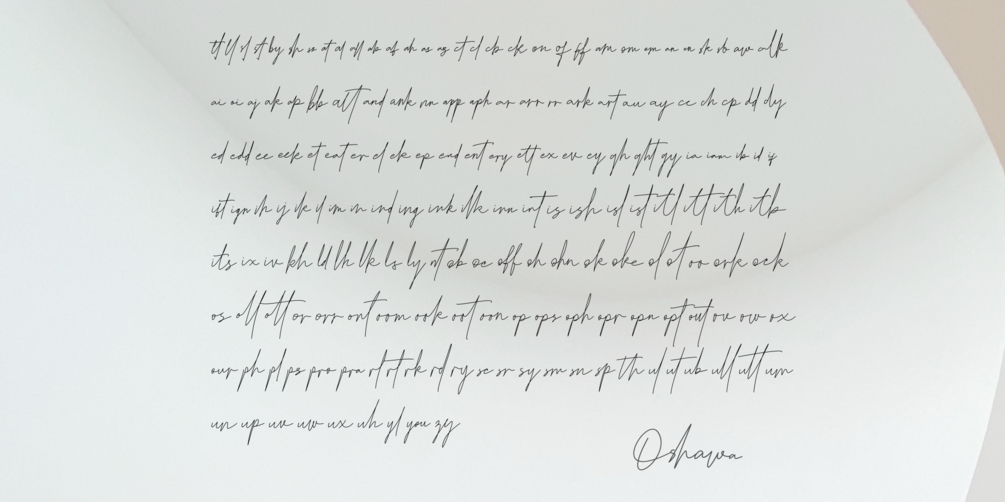 tt ll sl st by sh so at al all ab af ah as ag ct cl cb ck on of ff am om em an en sk rb aw alk
ai oi aj ak ap bb alt and ank nn app aph ar arr rr ark art au ay cc ch cp dd dy
ed edd ee eek et eat er el ek ep end ent ery ett ex ev ey gh ght gy ia iam ib id if
ift ign ih ij ik il im in ind ing ink ilk inn int is ish isl ist itl itt ith itb
its ix iv kh ld lh lk ls ly nt ob oc off oh ohn ok oke ol ot oo ork ock
os oll ott or orr ont oom ook oot oon op ops oph opr opn opt out ov ow ox
our ph pl ps pro pra rl rt rk rd ry sc sr sy sm sn sp th ul ut ub ull utt um
un up uv uw ux uh yl you zy
Oshawa